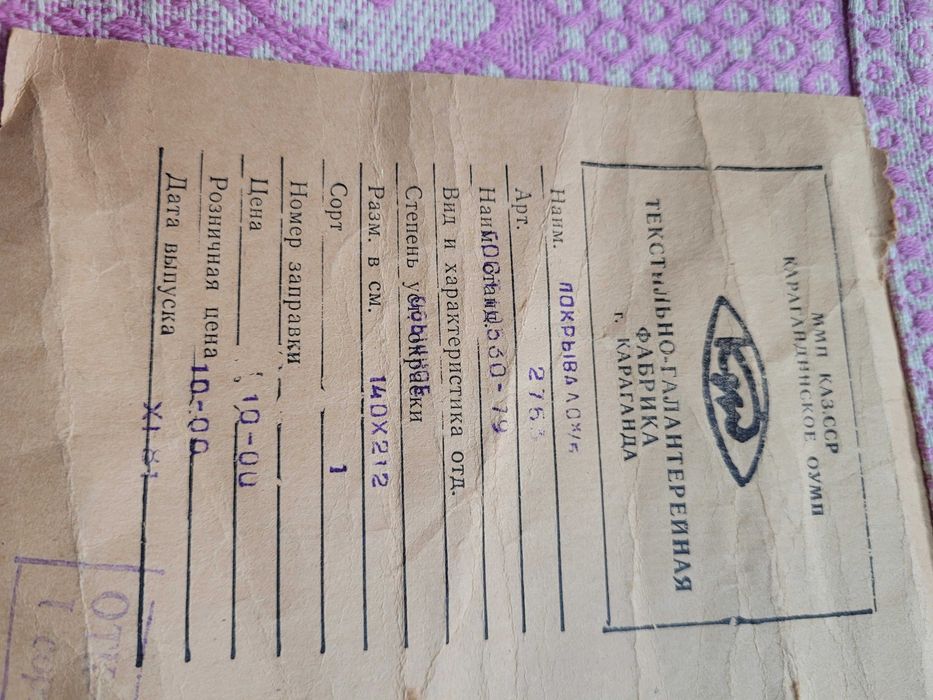 ММП КАЗ.ССР
КАРАГАНДИНСКОЕ ОУМП
КТГФ
ТЕКСТИЛЬНО-ГАЛАНТЕРЕЙНАЯ
ФАБРИКА
г. КАРАГАНДА
Наим. ПОКРЫВАЛО Х/Б
Арт. 275
Наим. станд. 530-79
Вид и характеристика отд.
Степень уст. окраски
Разм. в см. 140Х212
Сорт 1
Номер заправки
Цена 10-00
Розничная цена 10-00
Дата выпуска XI 81
ОТК
СОРТ 1